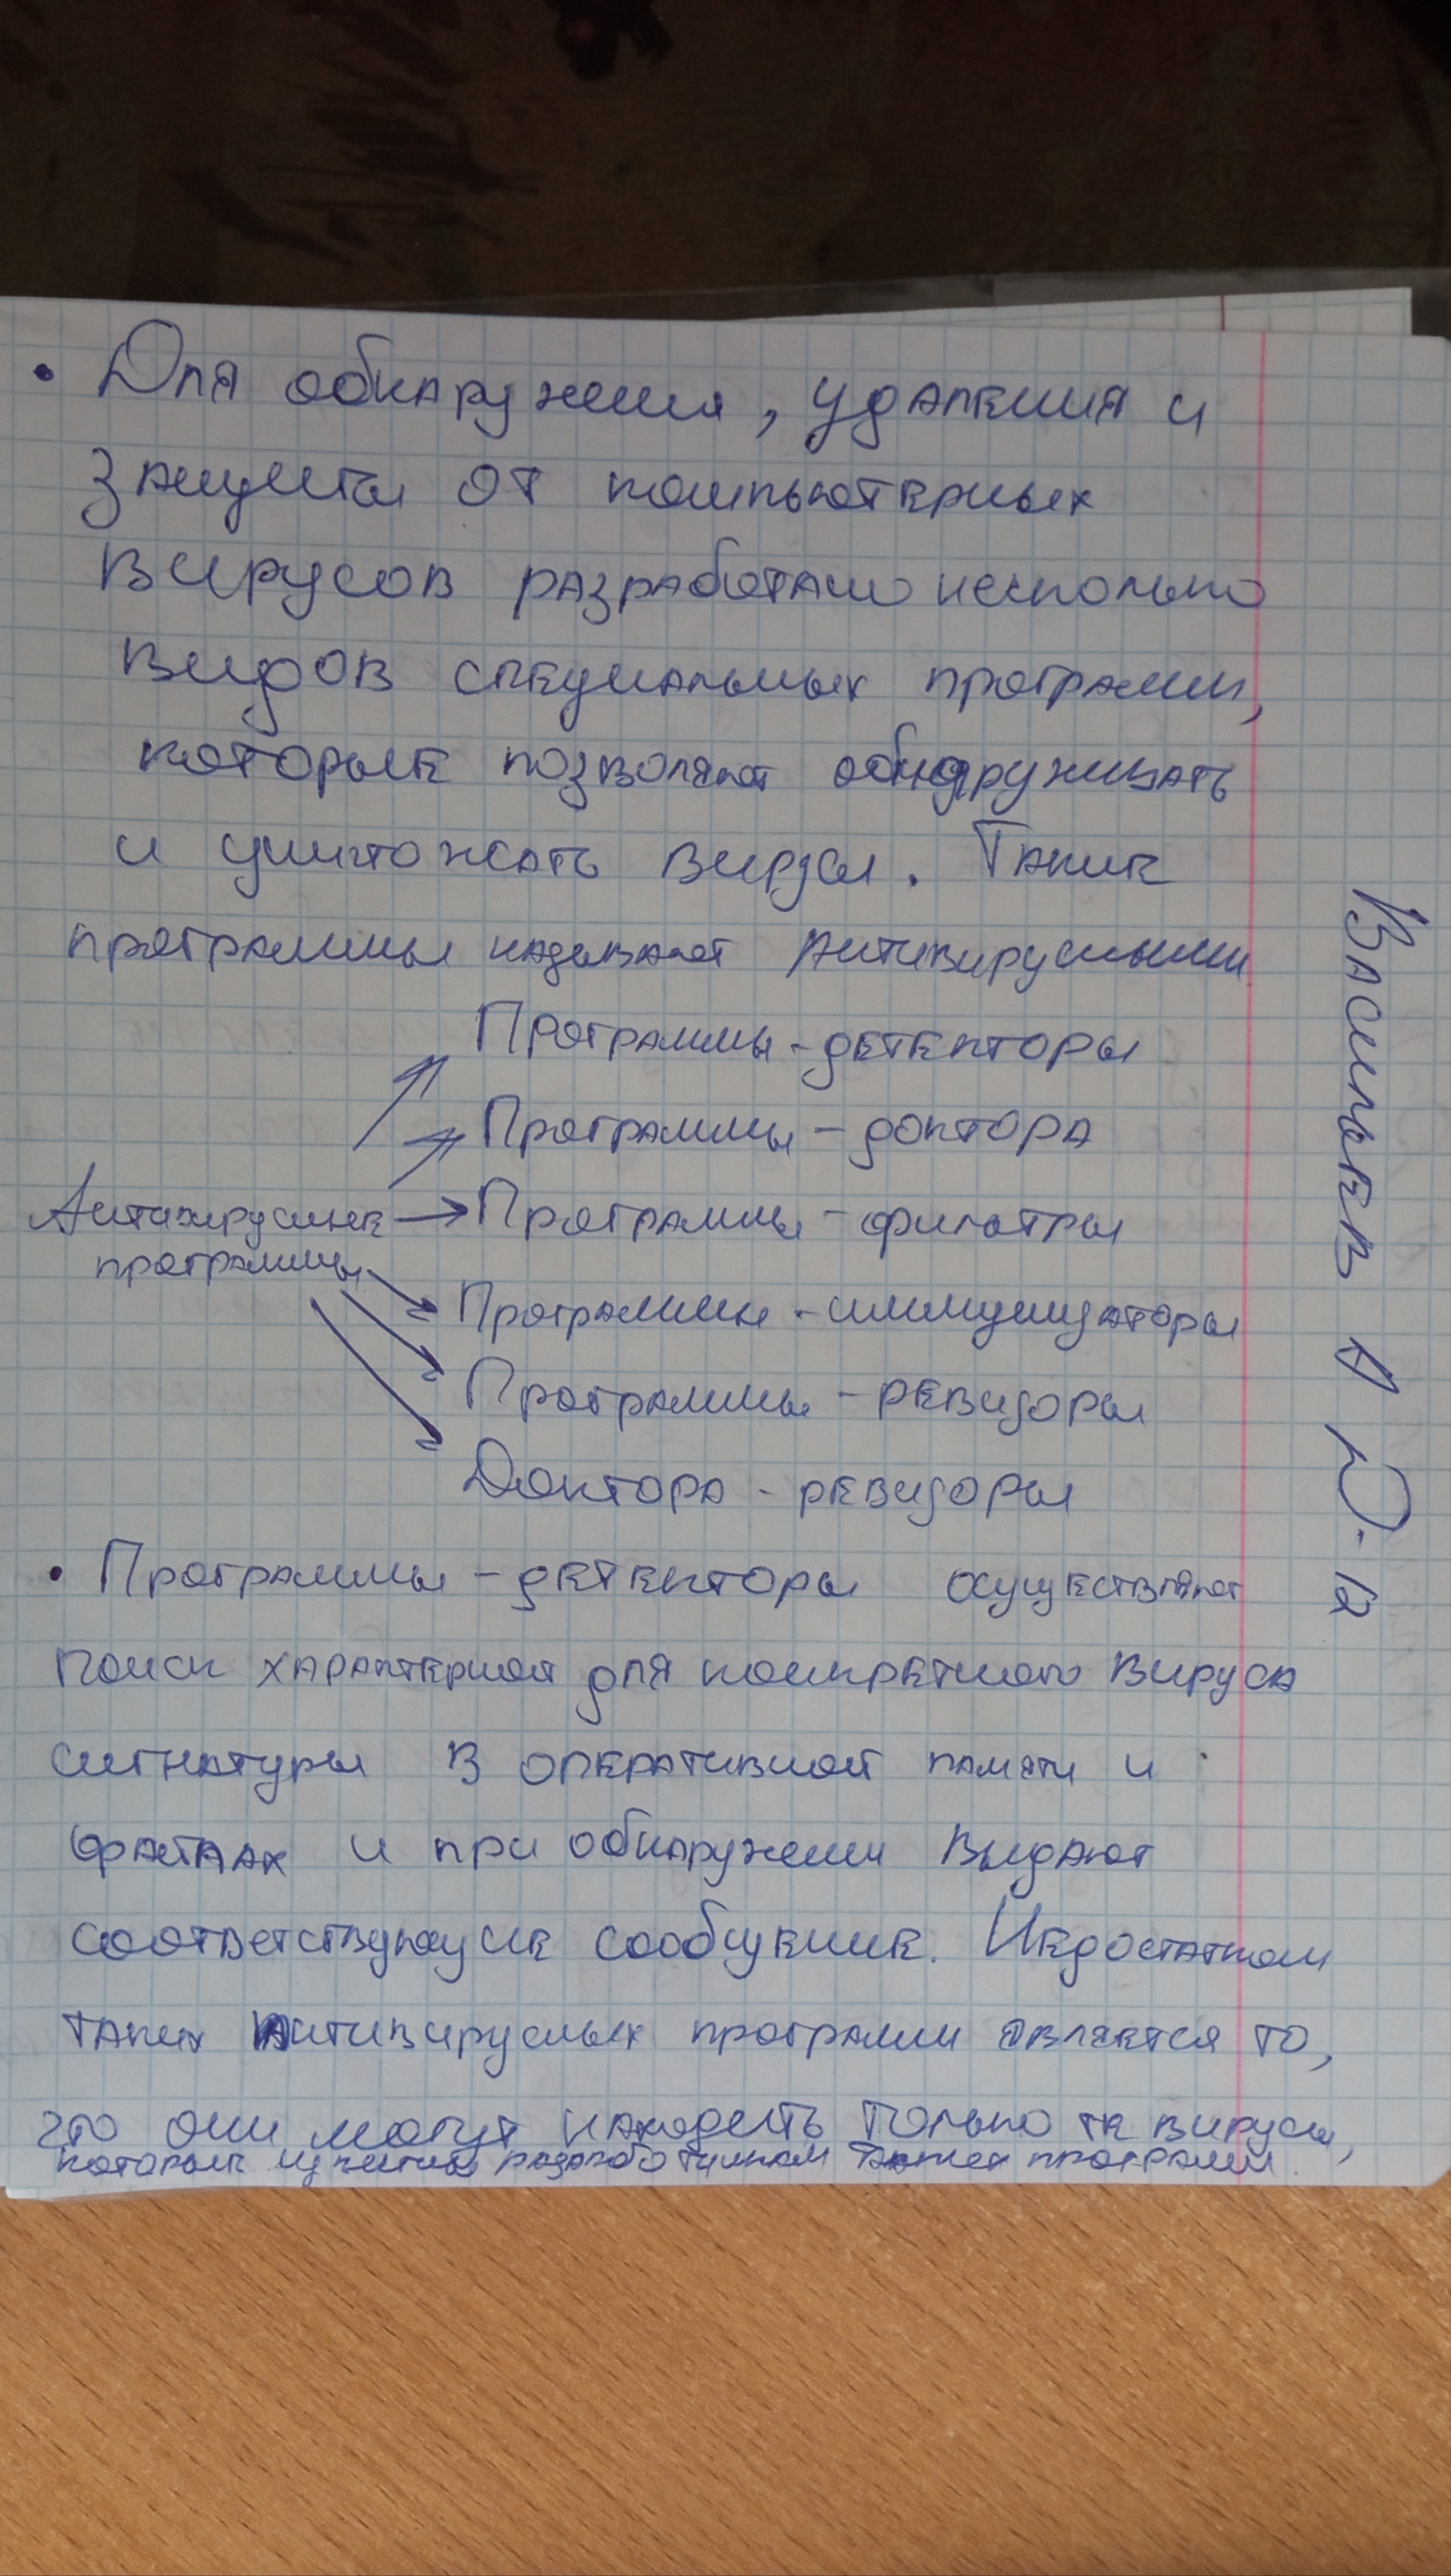 • Для обнаружения, удаления и
защиты от компьютерных
вирусов разработано несколько
видов специальных программ,
которые позволяют обнаруживать
и уничтожать вирусы. Такие
программы называют Антивирусными
Программы - детекторы
Программы - доктора
Антивирусные
программы
Программы - фильтры
Программы - иммунизаторы
Программы - ревизоры
Доктора - ревизоры
• Программы - детекторы осуществляют
поиск характерной для конкретного вируса
сигнатуры в оперативной памяти и
файлах и при обнаружении выдают
соответствующие сообщение. Недостатком
таких антивирусных программ является то,
что они могут находить только те вирусы,
которые известны разработчикам таких программ.
Васильев А